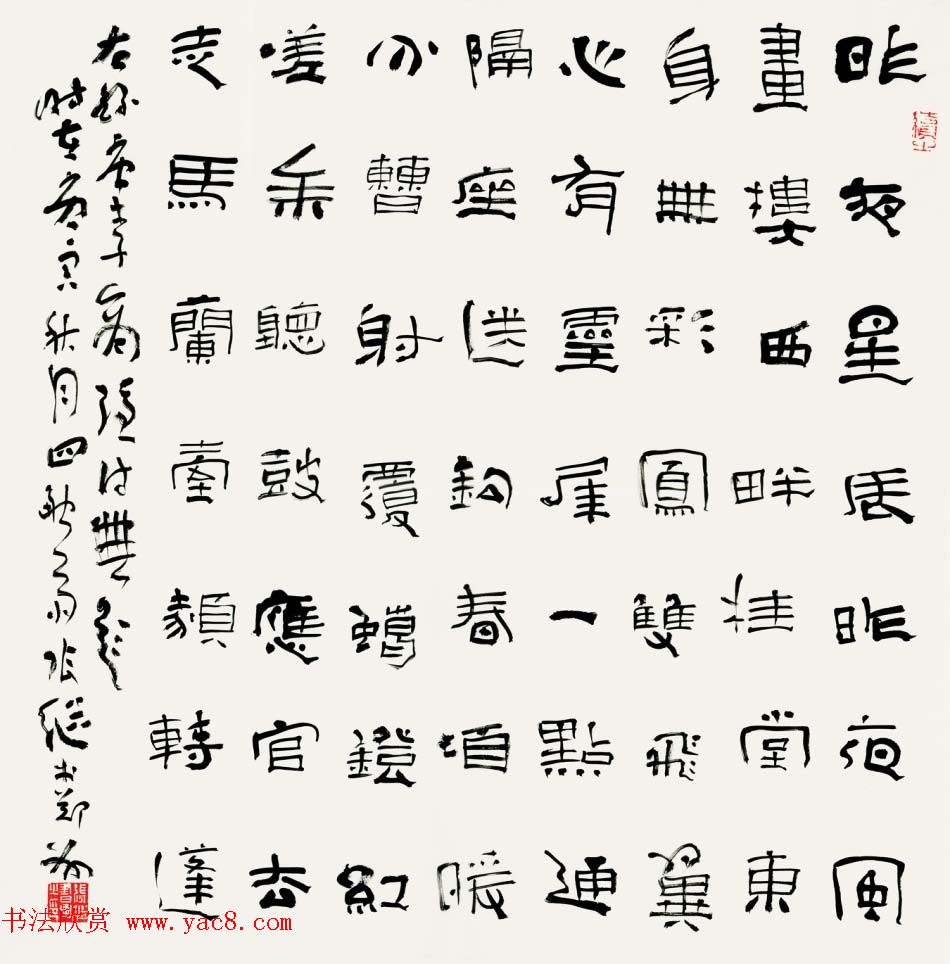 昨夜星辰昨夜風
畫樓西畔桂堂東
身無彩鳳雙飛翼
心有靈犀一點通
隔座送鉤春酒暖
分曹射覆蠟鐙紅
嗟余聽鼓應官去
走馬蘭臺類轉蓬
右錄唐李商隱詩無題
時在庚寅秋月四 張繼書
书法欣赏 www.yac8.com